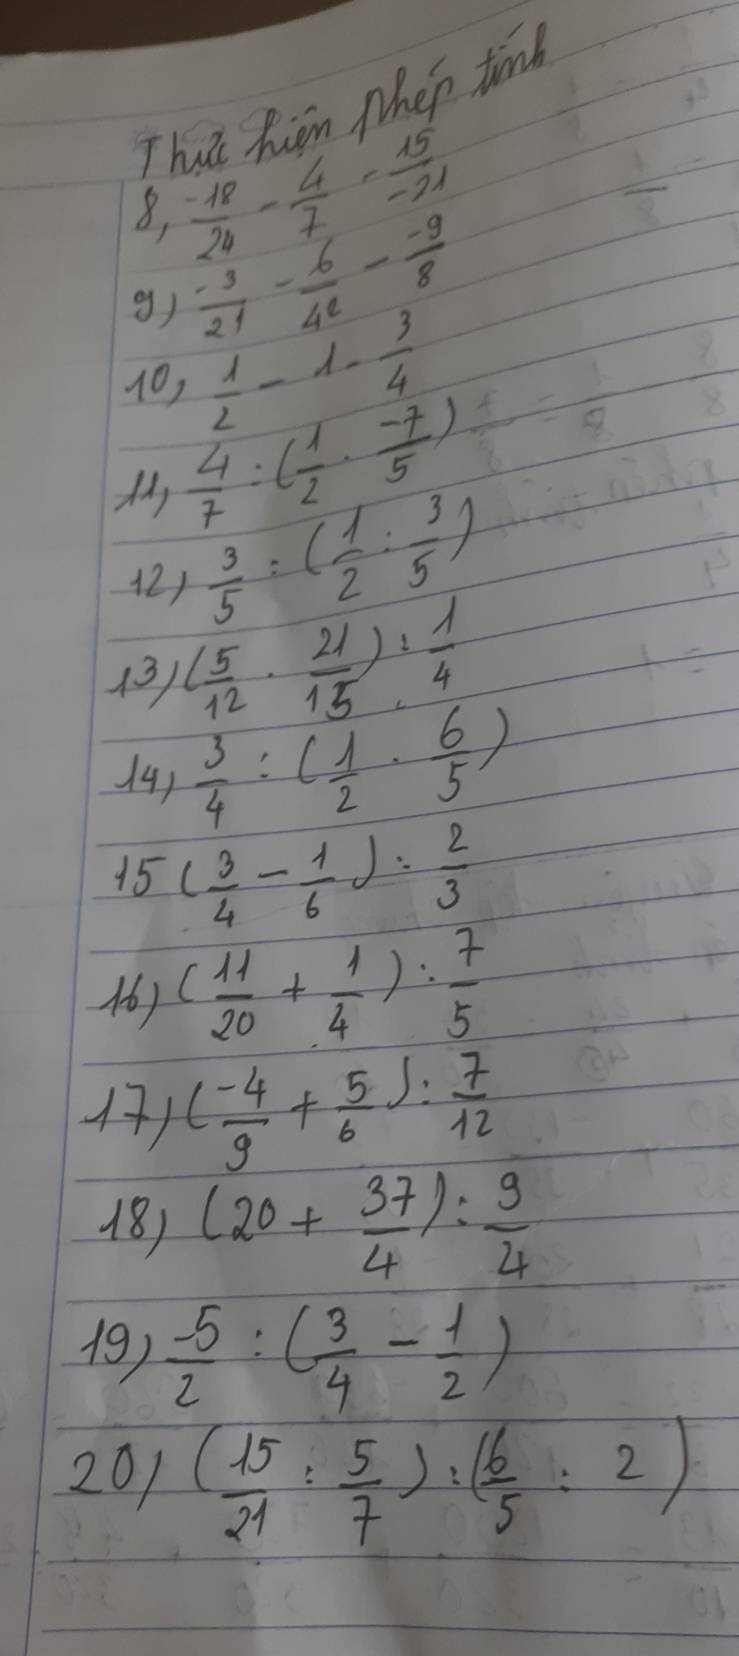 Thực hiện phép tính
8, -18/24 - 4/7 - 15/-21
9) -3/21 - 6/42 - -9/8
10, 1/2 - 1 - 3/4
11, 4/7 : (1/2 . -7/5)
12) 3/5 : (1/2 : 3/5)
13) (5/12 . 21/15) : 1/4
14, 3/4 : (1/2 . 6/5)
15 (3/4 - 1/6) : 2/3
16) (11/20 + 1/4) : 7/5
17) (-4/9 + 5/6) : 7/12
18) (20 + 37/4) : 9/4
19) -5/2 : (3/4 - 1/2)
20) (15/21 : 5/7) : (6/5 : 2)